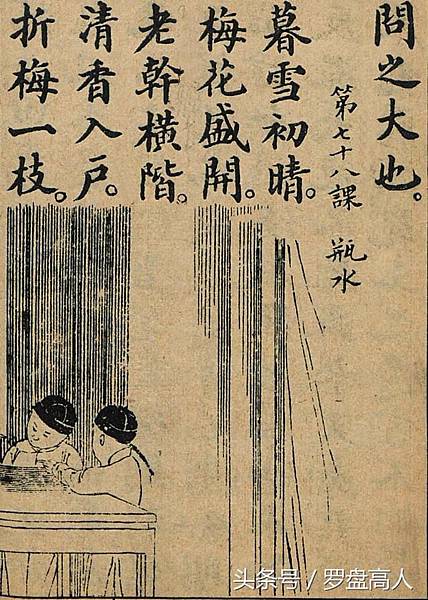 問之大也。
第七十八課　瓶水
暮雪初晴。
梅花盛開。
老幹橫階。
清香入戶。
折梅一枝。
头条号 / 罗盘高人